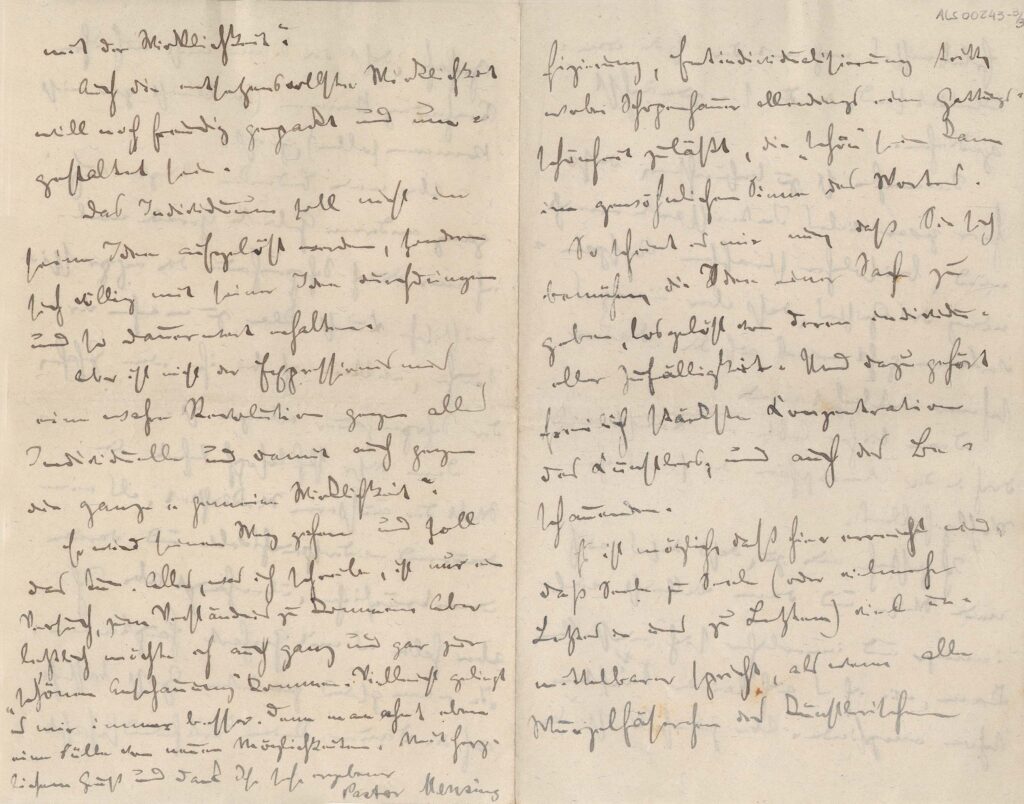 mit der Wirklichkeit?
Auch die entsetzensvollste Wirklichkeit
will noch freudig gepackt und um-
gestaltet sein.
Das Individuum soll nicht in
seine Idee aufgelöst werden, sondern
sich völlig mit seiner Idee durchdringen
und so dauerwert erhalten.
Aber ist nicht der Expressionismus
eine wahre Revolution gegen alles
Individuelle und damit auch gegen
die ganze "gemeine Wirklichkeit"?
Er wird seinen Weg gehen und soll
das tun. Alles, was ich schreibe, ist nur ein
Versuch, zum Verständnis zu kommen. Aber
letztlich möchte ich auch ganz und gar zur
"schönen Anschauung" kommen. Vielleicht gelingt
es mir immer besser. Denn man ahnt eben
eine Fülle von neuen Möglichkeiten. Mit herz-
lichem Gruß und Dank Ihr sehr ergebener
Pastor Mensing
ALS 00243-
fizierung, Entindividualisierung tritt,
wobei Schopenhauer allerdings eine Gattungs-
schönheit zuläßt, die "schön" sein kann
im gewöhnlichen Sinne des Wortes.
So scheint es mir nun, daß Sie sich
bemühen, die Idee einer Sache zu
geben, losgelöst von deren individu-
eller Zufälligkeit. Und dazu gehört
freilich stärkste Konzentration
des Künstlers, und auch des Be-
schauenden.
Es ist möglich, daß hier erreicht wird,
daß Seele zu Seele (oder vielmehr
Letztes in uns zu Letztem) viel un-
mittelbarer spricht, als wenn alle
Wurzelfäserchen des Künstlerischen